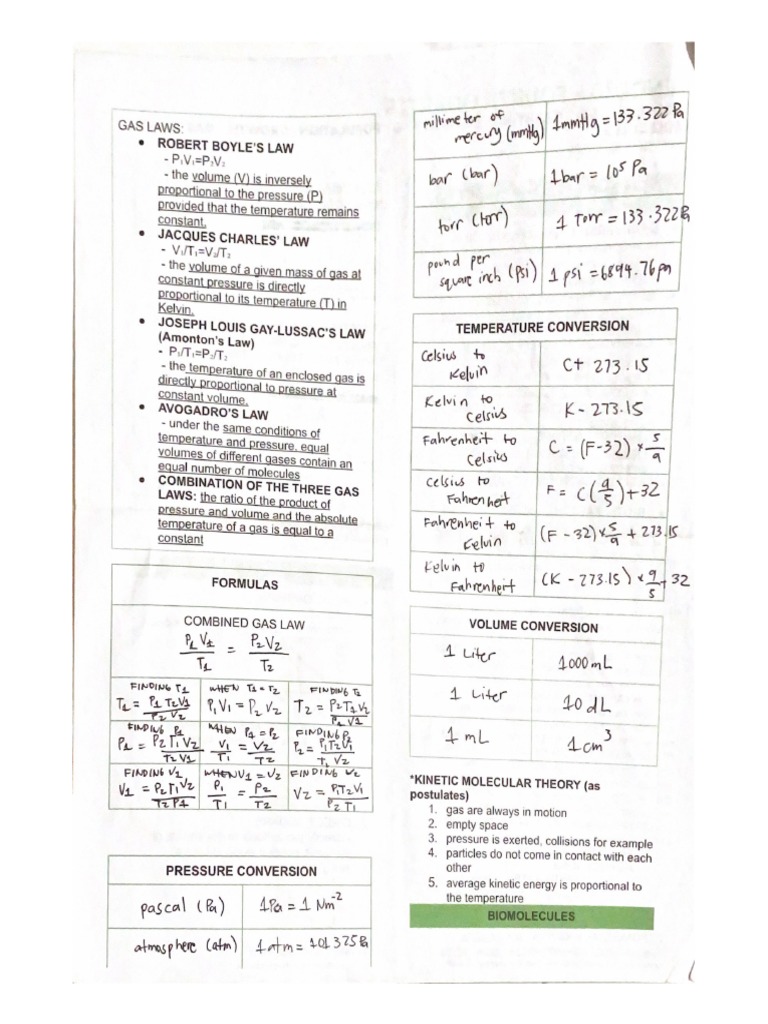 GAS LAWS:
• ROBERT BOYLE'S LAW
- P₁V₁=P₂V₂
- the volume (V) is inversely
proportional to the pressure (P)
provided that the temperature remains
constant.
• JACQUES CHARLES' LAW
- V₁/T₁=V₂/T₂
- the volume of a given mass of gas at
constant pressure is directly
proportional to its temperature (T) in
Kelvin.
• JOSEPH LOUIS GAY-LUSSAC'S LAW
(Amonton's Law)
- P₁/T₁=P₂/T₂
- the temperature of an enclosed gas is
directly proportional to pressure at
constant volume.
• AVOGADRO'S LAW
- under the same conditions of
temperature and pressure, equal
volumes of different gases contain an
equal number of molecules
• COMBINATION OF THE THREE GAS
LAWS: the ratio of the product of
pressure and volume and the absolute
temperature of a gas is equal to a
constant
FORMULAS
COMBINED GAS LAW
P₁V₁/T₁ = P₂V₂/T₂
FINDING T₁ WHEN T₁=T₂ FINDING T₂
T₁ = P₁T₂V₁/P₂V₂ P₁V₁ = P₂V₂ T₂ = P₂T₁V₂/P₁V₁
FINDING P₁ WHEN P₁=P₂ FINDING P₂
P₁ = P₂T₁V₂/T₂V₁ V₁/T₁ = V₂/T₂ P₂ = P₁T₂V₁/T₁V₂
FINDING V₁ WHEN V₁=V₂ FINDING V₂
V₁ = P₂T₁V₂/T₂P₁ P₁/T₁ = P₂/T₂ V₂ = P₁T₂V₁/P₂T₁
PRESSURE CONVERSION
pascal (Pa) 1Pa = 1 Nm⁻²
atmosphere (atm) 1 atm = 101 325 Pa
millimeter of
mercury (mmHg) 1mmHg = 133.322 Pa
bar (bar) 1bar = 10⁵ Pa
torr (torr) 1 Torr = 133.322 Pa
pound per
square inch (psi) 1 psi = 6894.76 pa
TEMPERATURE CONVERSION
Celsius to
Kelvin C + 273.15
Kelvin to
Celsius K - 273.15
Fahrenheit to
Celsius C = (F-32) × 5/9
Celsius to
Fahrenheit F = C(9/5) + 32
Fahrenheit to
Kelvin (F - 32) × 5/9 + 273.15
Kelvin to
Fahrenheit (K - 273.15) × 9/5 + 32
VOLUME CONVERSION
1 Liter 1000 mL
1 Liter 10 dL
1 mL 1 cm³
*KINETIC MOLECULAR THEORY (as
postulates)
1. gas are always in motion
2. empty space
3. pressure is exerted, collisions for example
4. particles do not come in contact with each
other
5. average kinetic energy is proportional to
the temperature
BIOMOLECULES